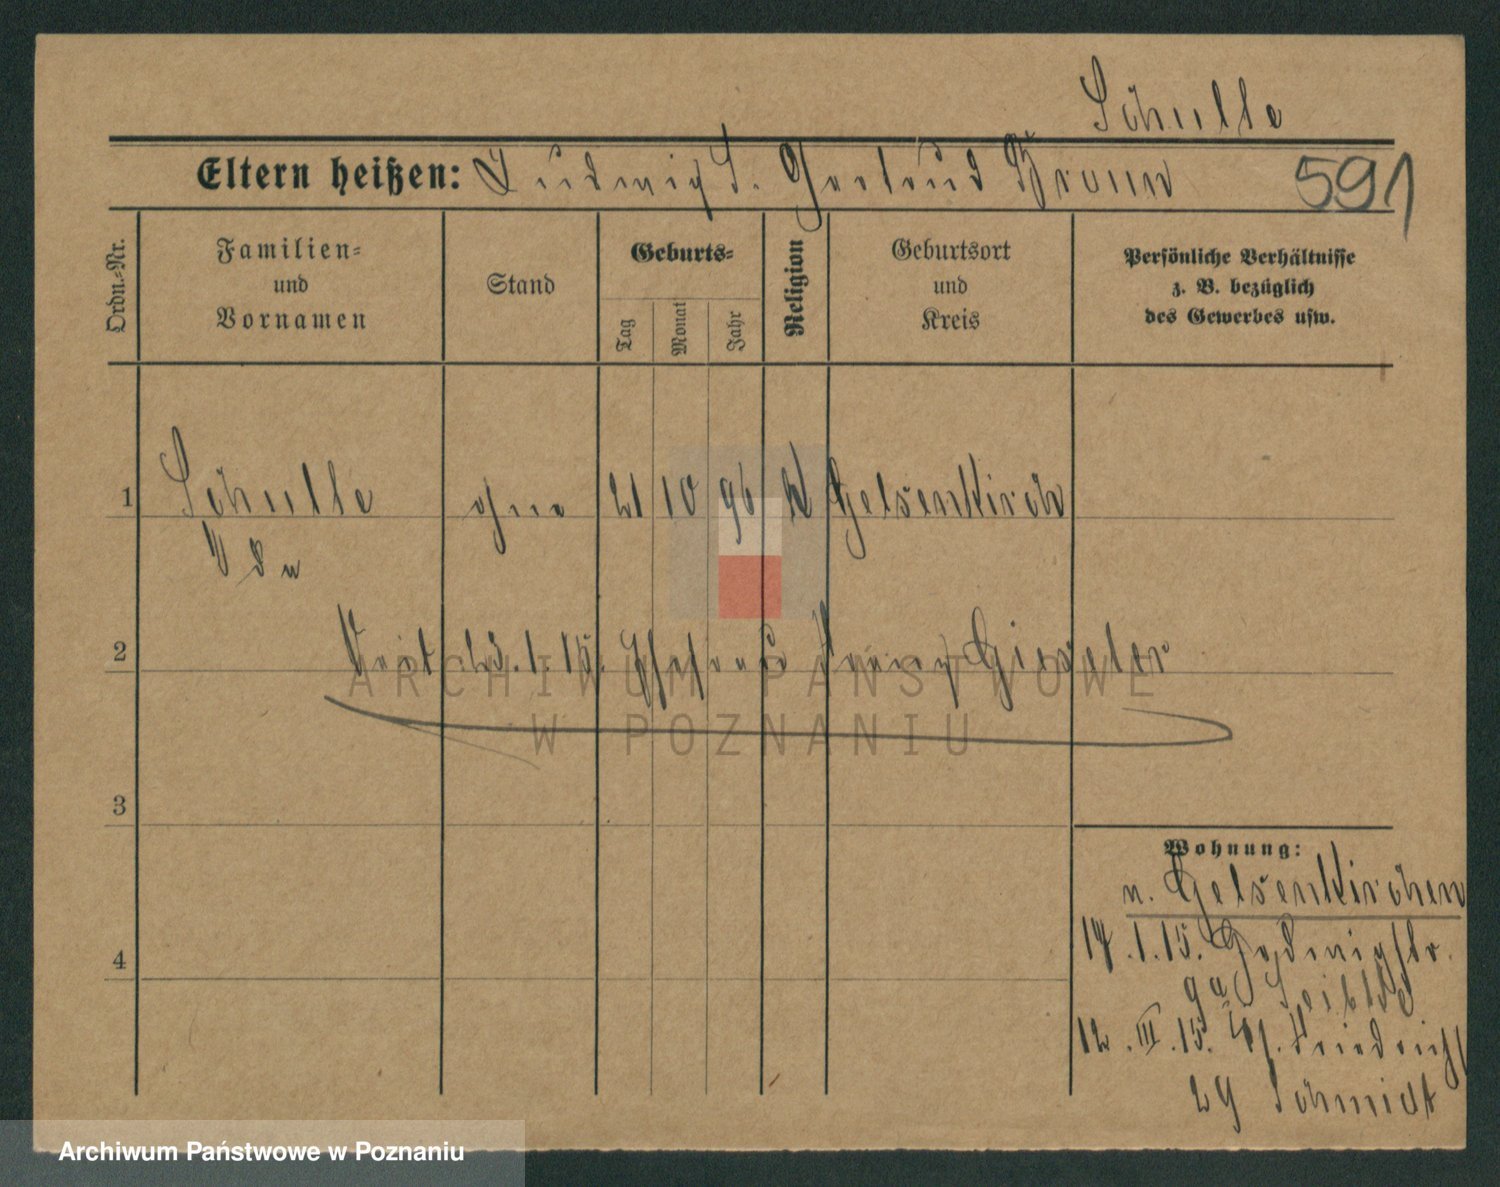 Schulte
Eltern heißen: Ludwig S. Gertrud Braun 591
Ordn.-Nr.
Familien-
und
Vornamen
Stand
Geburts-
Tag
Monat
Jahr
Religion
Geburtsort
und
Kreis
Persönliche Verhältnisse
z. B. bezüglich
des Gewerbes usw.
1 Schulte ohne 21 10 96 k Gelsenkirch
2 1.15. Ehefrau Franz Gieseler
ARCHIWUM PAŃSTWOWE
W POZNANIU
3
Wohnung:
n. Gelsenkirchen
4
14.1.15.
9a
12.III.15. Friedrichs
29 Schmidt
Archiwum Państwowe w Poznaniu